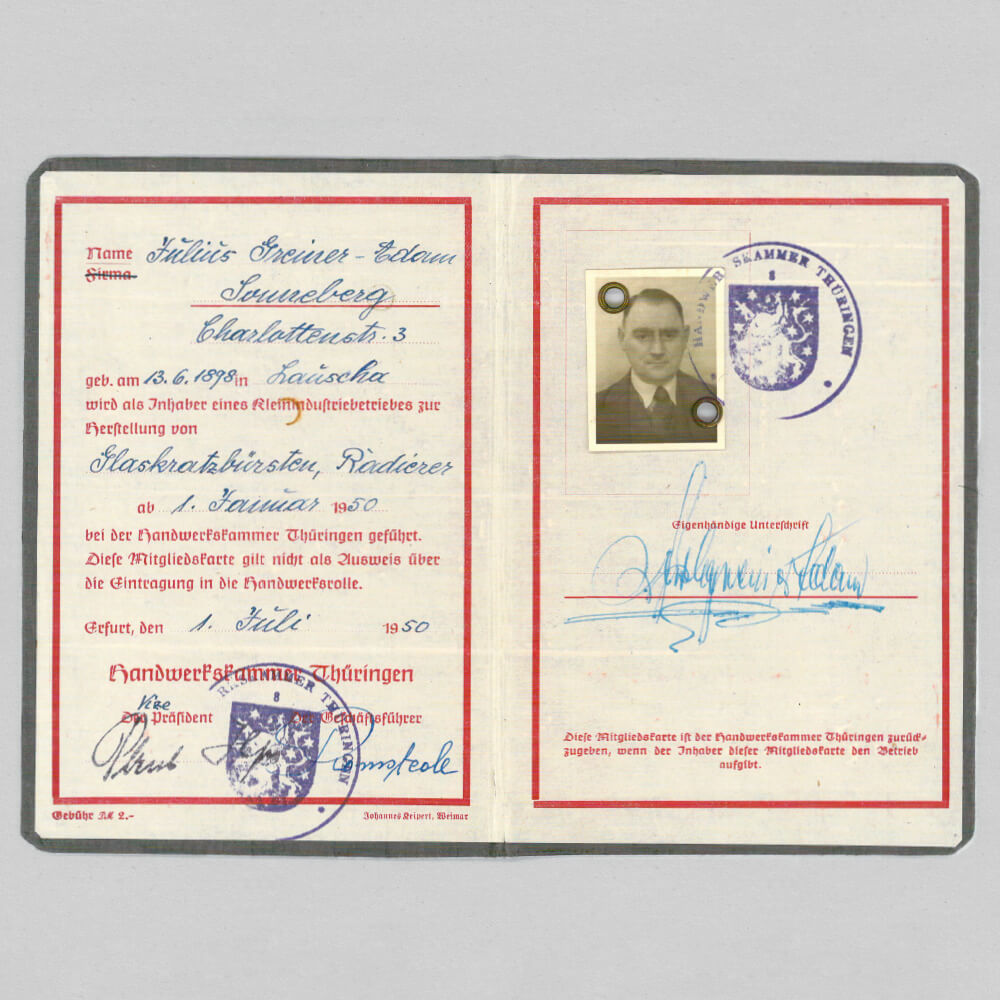 Name Julius Greiner-Adam
Firma
Sonneberg
Charlottenstr. 3
geb. am 13.6.1898 in Lauscha
wird als Inhaber eines Kleinindustriebetriebes zur
Herstellung von
Glaskratzbürsten, Radierer
ab 1. Januar 1950
bei der Handwerkskammer Thüringen geführt.
Diese Mitgliedskarte gilt nicht als Ausweis über
die Eintragung in die Handwerksrolle.
Erfurt, den 1. Juli 1950
Handwerkskammer Thüringen
Vize
Der Präsident Der Geschäftsführer
RKSKAMMER THÜRINGEN
8
Gebühr RM 2.-
Johannes Keipert, Weimar
HANDWER SKAMMER THÜRINGEN
8
Eigenhändige Unterschrift
Adam
Diese Mitgliedskarte ist der Handwerkskammer Thüringen zurück-
zugeben, wenn der Inhaber dieser Mitgliedskarte den Betrieb
aufgibt.